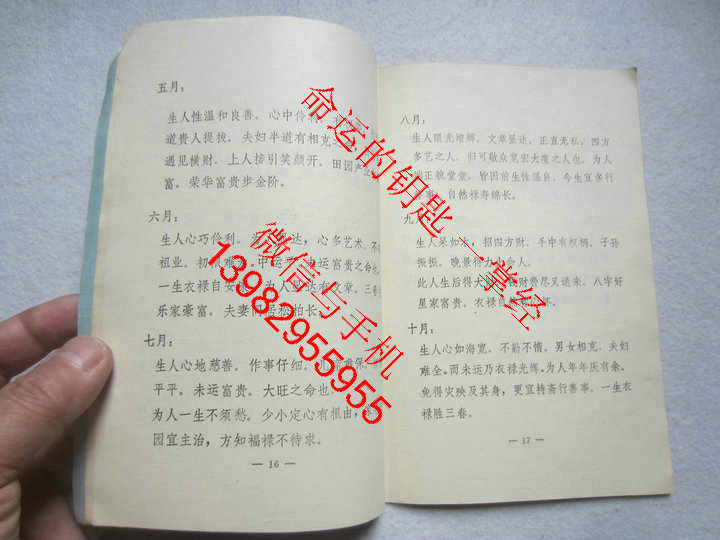 五月：
生人性温和良善。心中伶利。
道贵人提拔。夫妇半道有相克之
遇见横财。上人接引笑颜开。田园产业
富。荣华富贵步金阶。
六月：
生人心巧伶利。为达，心多艺术，不
祖业，初限难为。中运平。末运富贵之命也
一生衣禄自安。为人显达有文章。三春
乐家豪富。夫妻同居松柏长。
七月：
生人心地慈善。作事仔细。儿难保。
平平。末运富贵。大旺之命也。
为人一生不须愁。少小定心有根由，
园宜主治，方知福禄不待求。
— 16 —
八月：
生人眼光增辉，文章显达。正直无私，四方
多艺之人，归可敬众宽宏大度之人也，为人
刚正貌堂堂，皆因前生性温良。今生宜多行
善事，自然禄寿绵长。
九月：
生人呆如木，招四方财。手中有权柄，子孙
振振。晚景得力之命人。
此人生后得大财，钱财费尽又送来。八字好
星家富贵。衣禄自然称怀。
十月：
生人心如海宽，不勤不惰，男女相克，夫妇
难全。而末运乃衣禄光辉。为人年年庆有余、
免得灾殃及其身，更宜持斋行善事，一生衣
禄胜三春。
— 17 —
命运的钥匙·掌经
微信与手机
13982955955